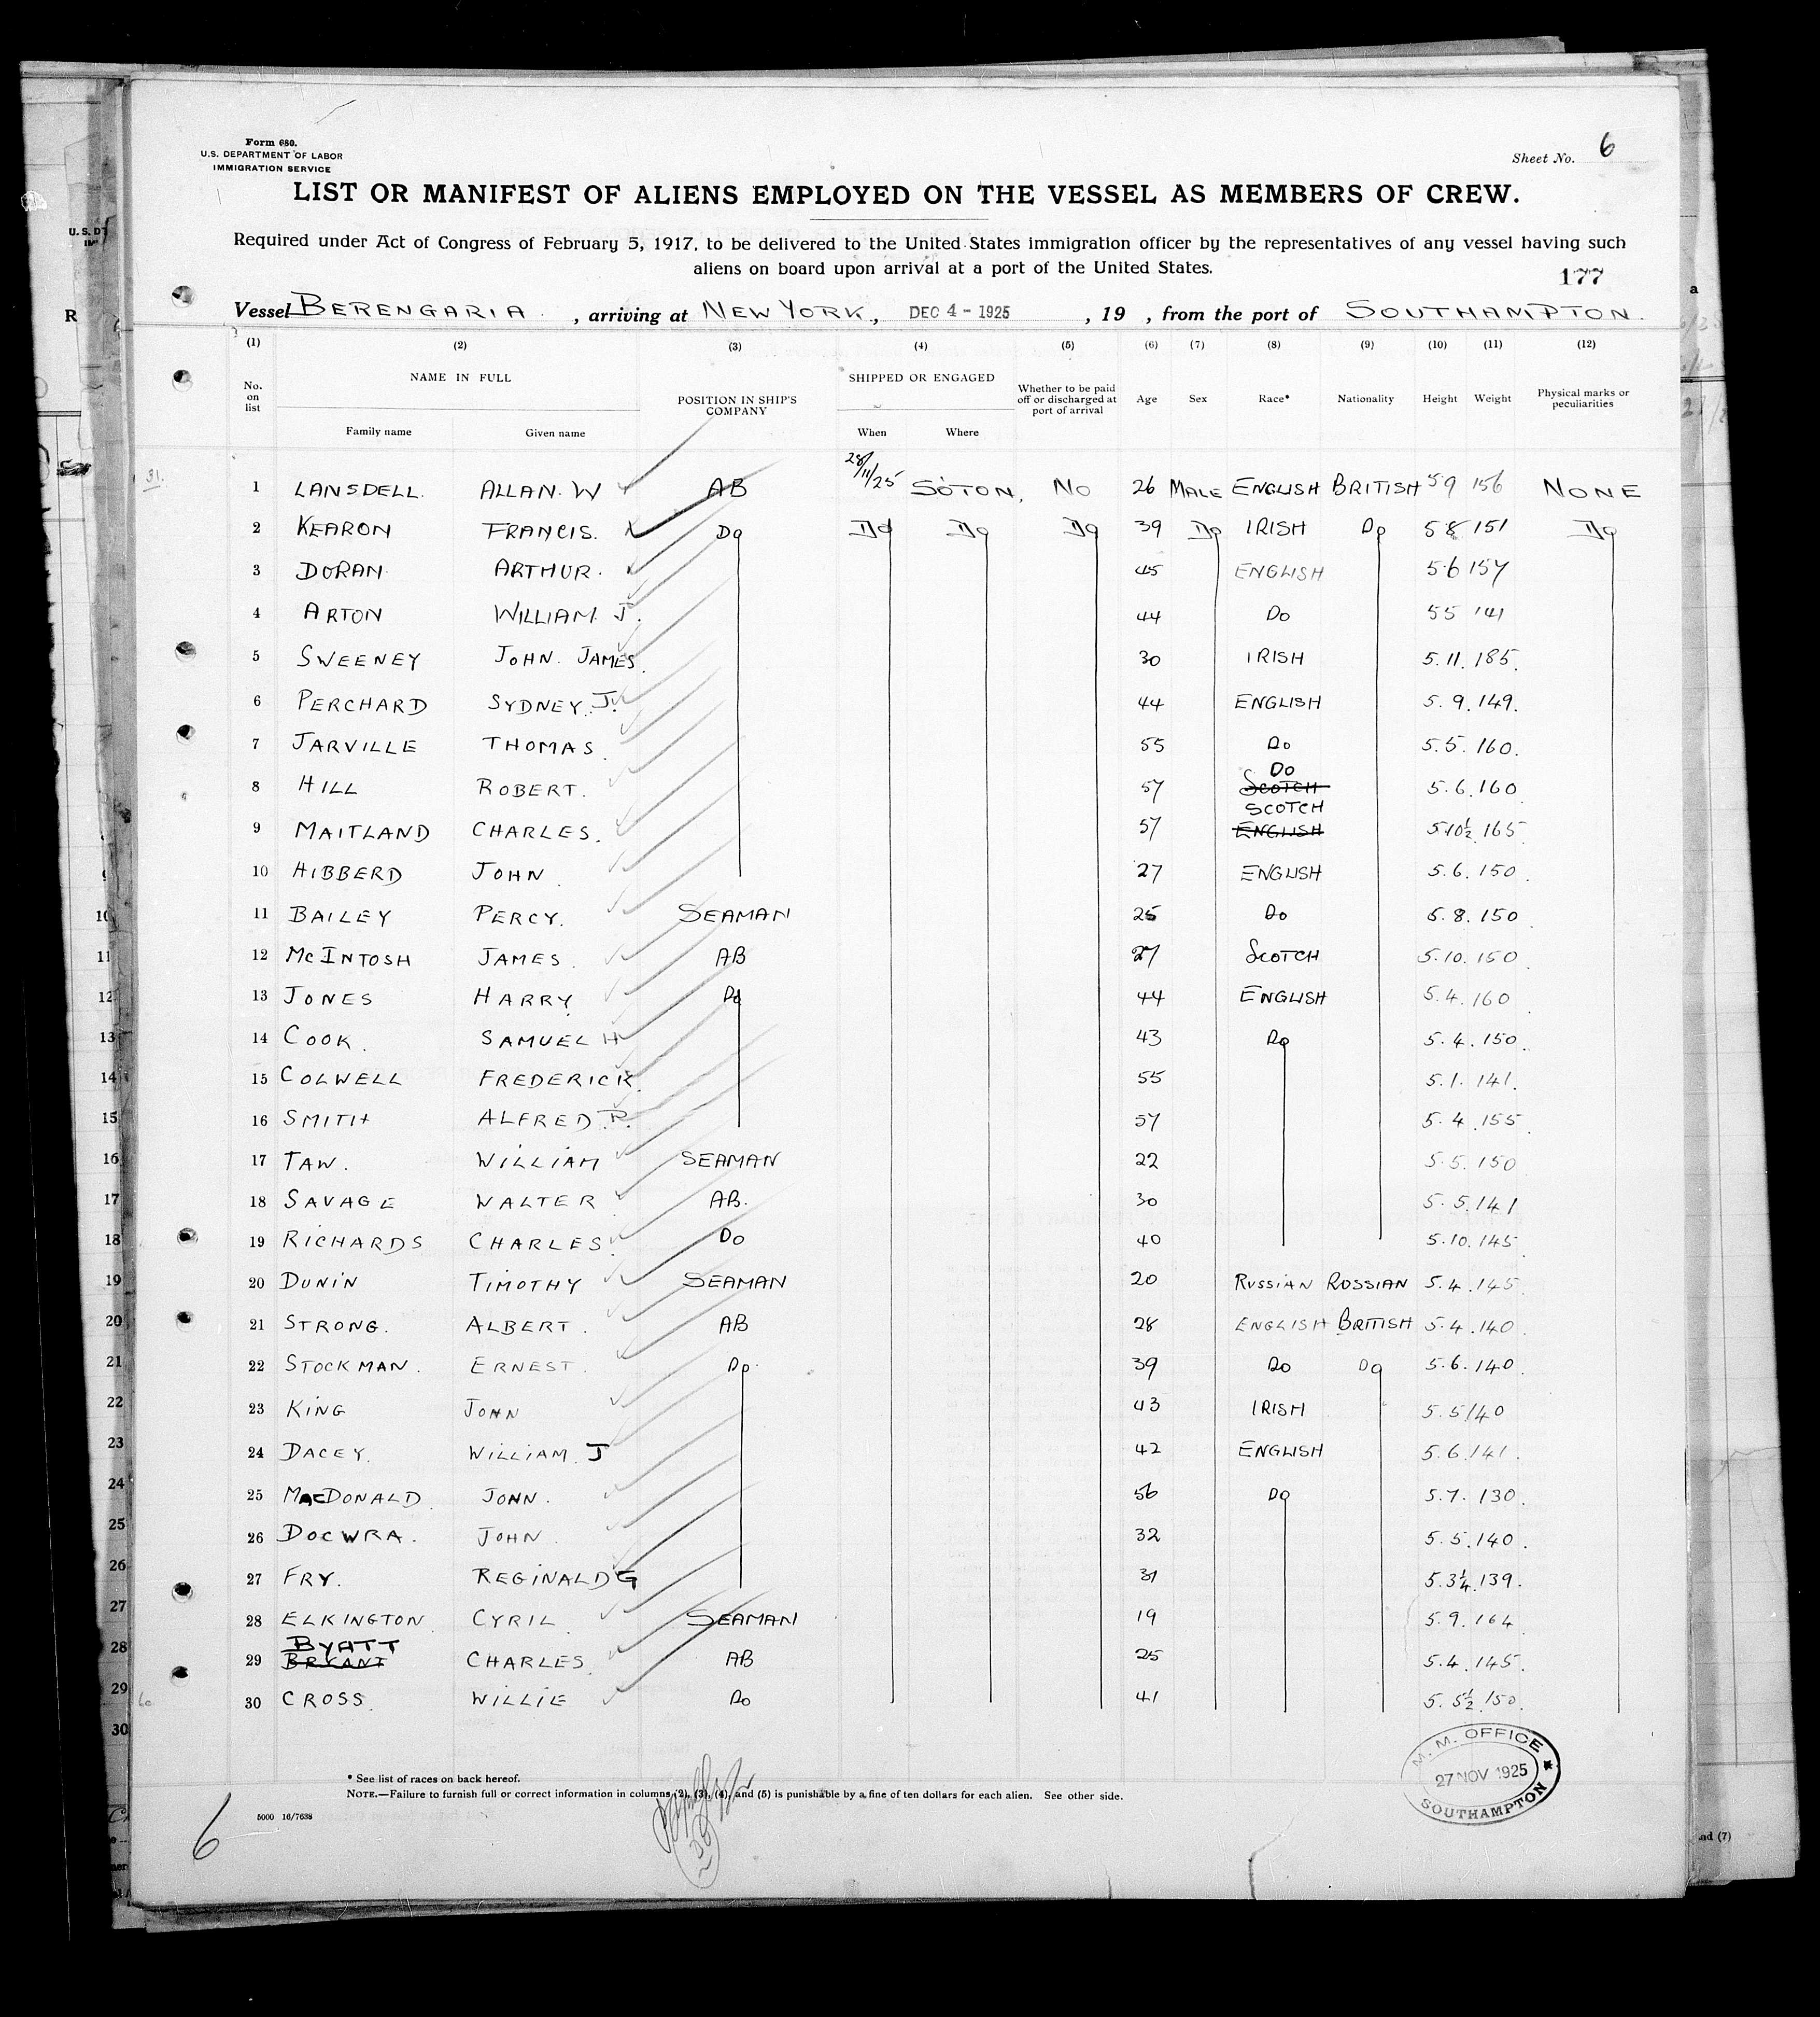 Form 680.
U.S. DEPARTMENT OF LABOR
IMMIGRATION SERVICE
Sheet No. 6
LIST OR MANIFEST OF ALIENS EMPLOYED ON THE VESSEL AS MEMBERS OF CREW.
Required under Act of Congress of February 5, 1917, to be delivered to the United States immigration officer by the representatives of any vessel having such
aliens on board upon arrival at a port of the United States.
177
Vessel BERENGARIA, arriving at NEW YORK, DEC 4 - 1925, 19 , from the port of SOUTHAMPTON.
(1) (2) (3) (4) (5) (6) (7) (8) (9) (10) (11) (12)
No. on list NAME IN FULL POSITION IN SHIP'S COMPANY SHIPPED OR ENGAGED Whether to be paid off or discharged at port of arrival Age Sex Race* Nationality Height Weight Physical marks or peculiarities
Family name Given name When Where
1 LANSDELL. ALLAN. W AB 28/11/25 SOTON, NO 26 MALE ENGLISH BRITISH 5 9 156 NONE
2 KEARON FRANCIS. Do Do Do Do 39 Do IRISH Do 5 8 151 Do
3 DORAN ARTHUR. 45 ENGLISH 5 6 157
4 ARTON WILLIAM. J. 44 Do 5 5 141
5 SWEENEY JOHN. JAMES. 30 IRISH 5. 11. 185.
6 PERCHARD SYDNEY. J. 44 ENGLISH 5. 9. 149.
7 JARVILLE THOMAS. 55 Do 5. 5. 160.
Do
8 HILL ROBERT. 57 SCOTCH 5. 6. 160
SCOTCH
9 MAITLAND CHARLES. 57 ENGLISH 5 10½. 165
10 HIBBERD JOHN. 27 ENGLISH 5. 6. 150.
11 BAILEY PERCY. SEAMAN 25 Do 5. 8. 150
12 McINTOSH JAMES. AB 27 SCOTCH 5. 10. 150
13 JONES HARRY Do 44 ENGLISH 5. 4. 160
14 COOK. SAMUEL H 43 Do 5. 4. 150.
15 COLWELL FREDERICK. 55 5. 1. 141.
16 SMITH ALFRED. R. 57 5. 4. 155.
17 TAW. WILLIAM SEAMAN 22 5. 5. 150
18 SAVAGE WALTER AB. 30 5. 5. 141
19 RICHARDS CHARLES. Do 40 5. 10. 145
20 DUNIN TIMOTHY SEAMAN 20 RUSSIAN RUSSIAN 5. 4. 145
21 STRONG. ALBERT. AB 28 ENGLISH BRITISH 5. 4. 140
22 STOCKMAN. ERNEST. Do. 39 Do Do 5. 6. 140
23 KING JOHN 43 IRISH 5. 5 140
24 DACEY. WILLIAM. J 42 ENGLISH 5. 6. 141.
25 MacDONALD JOHN. 56 Do 5. 7. 130.
26 DOCWRA. JOHN 32 5. 5. 140.
27 FRY. REGINALD G 31 5. 3¼. 139.
28 ELKINGTON CYRIL SEAMAN 19 5. 9. 164
BYATT
29 BRYANT CHARLES. AB 25 5. 4. 145.
30 CROSS. WILLIE Do 41 5. 5½. 150.
* See list of races on back hereof.
NOTE.—Failure to furnish full or correct information in columns (2), (3), (4), and (5) is punishable by a fine of ten dollars for each alien. See other side.
5000 16/7638
6
M. M. OFFICE
27 NOV 1925
SOUTHAMPTON